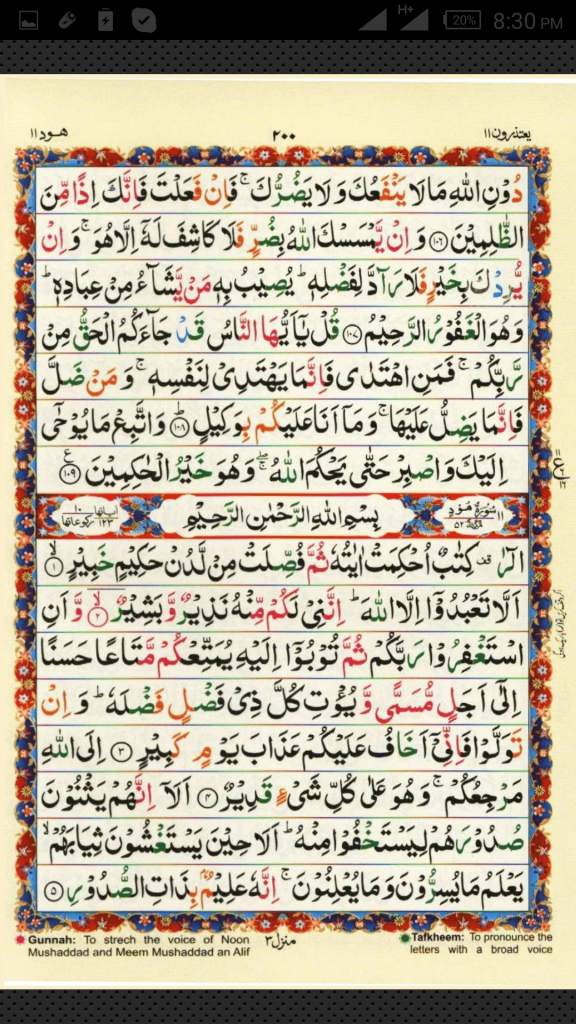 20% 8:30 PM
H+
هود ۱۱
۲۰۰
یعتذرون ۱۱
دُوْنِ اللّٰهِ مَا لَا یَنْفَعُكَ وَ لَا یَضُرُّكَ ۚ فَاِنْ فَعَلْتَ فَاِنَّكَ اِذًا مِّنَ
الظّٰلِمِیْنَ ﴿۱۰۶﴾ وَ اِنْ یَّمْسَسْكَ اللّٰهُ بِضُرٍّ فَلَا كَاشِفَ لَهٗۤ اِلَّا هُوَ ۚ وَ اِنْ
یُّرِدْكَ بِخَیْرٍ فَلَا رَآدَّ لِفَضْلِهٖ ؕ یُصِیْبُ بِهٖ مَنْ یَّشَآءُ مِنْ عِبَادِهٖ ؕ
وَ هُوَ الْغَفُوْرُ الرَّحِیْمُ ﴿۱۰۷﴾ قُلْ یٰۤاَیُّهَا النَّاسُ قَدْ جَآءَكُمُ الْحَقُّ مِنْ
رَّبِّكُمْ ۚ فَمَنِ اهْتَدٰی فَاِنَّمَا یَهْتَدِیْ لِنَفْسِهٖ ۚ وَ مَنْ ضَلَّ
فَاِنَّمَا یَضِلُّ عَلَیْهَا ۚ وَ مَاۤ اَنَا عَلَیْكُمْ بِوَكِیْلٍ ﴿۱۰۸﴾ؕ وَ اتَّبِعْ مَا یُوْحٰۤی
اِلَیْكَ وَ اصْبِرْ حَتّٰی یَحْكُمَ اللّٰهُ ۖۚ وَ هُوَ خَیْرُ الْحٰكِمِیْنَ ﴿۱۰۹﴾ ع
۱۱ سُوْرَةُ هُوْدٍ مَكِّيَّةٌ ۵۲
بِسْمِ اللّٰهِ الرَّحْمٰنِ الرَّحِیْمِ
اٰیاتها ۱۲۳ رکوعاتها ۱۰
الٓرٰ ۟قف كِتٰبٌ اُحْكِمَتْ اٰیٰتُهٗ ثُمَّ فُصِّلَتْ مِنْ لَّدُنْ حَكِیْمٍ خَبِیْرٍ ﴿۱﴾ۙ
اَلَّا تَعْبُدُوْۤا اِلَّا اللّٰهَ ؕ اِنَّنِیْ لَكُمْ مِّنْهُ نَذِیْرٌ وَّ بَشِیْرٌ ﴿۲﴾ۙ وَّ اَنِ
اسْتَغْفِرُوْا رَبَّكُمْ ثُمَّ تُوْبُوْۤا اِلَیْهِ یُمَتِّعْكُمْ مَّتَاعًا حَسَنًا
اِلٰۤی اَجَلٍ مُّسَمًّی وَّ یُؤْتِ كُلَّ ذِیْ فَضْلٍ فَضْلَهٗ ؕ وَ اِنْ
تَوَلَّوْا فَاِنِّیْۤ اَخَافُ عَلَیْكُمْ عَذَابَ یَوْمٍ كَبِیْرٍ ﴿۳﴾ اِلَی اللّٰهِ
مَرْجِعُكُمْ ۚ وَ هُوَ عَلٰی كُلِّ شَیْءٍ قَدِیْرٌ ﴿۴﴾ اَلَاۤ اِنَّهُمْ یَثْنُوْنَ
صُدُوْرَهُمْ لِیَسْتَخْفُوْا مِنْهُ ؕ اَلَا حِیْنَ یَسْتَغْشُوْنَ ثِیَابَهُمْ ۙ
یَعْلَمُ مَا یُسِرُّوْنَ وَ مَا یُعْلِنُوْنَ ۚ اِنَّهٗ عَلِیْمٌۢ بِذَاتِ الصُّدُوْرِ ﴿۵﴾
Gunnah: To strech the voice of Noon
Mushaddad and Meem Mushaddad an Alif
منزل ۳
Tafkheem: To pronounce the
letters with a broad voice